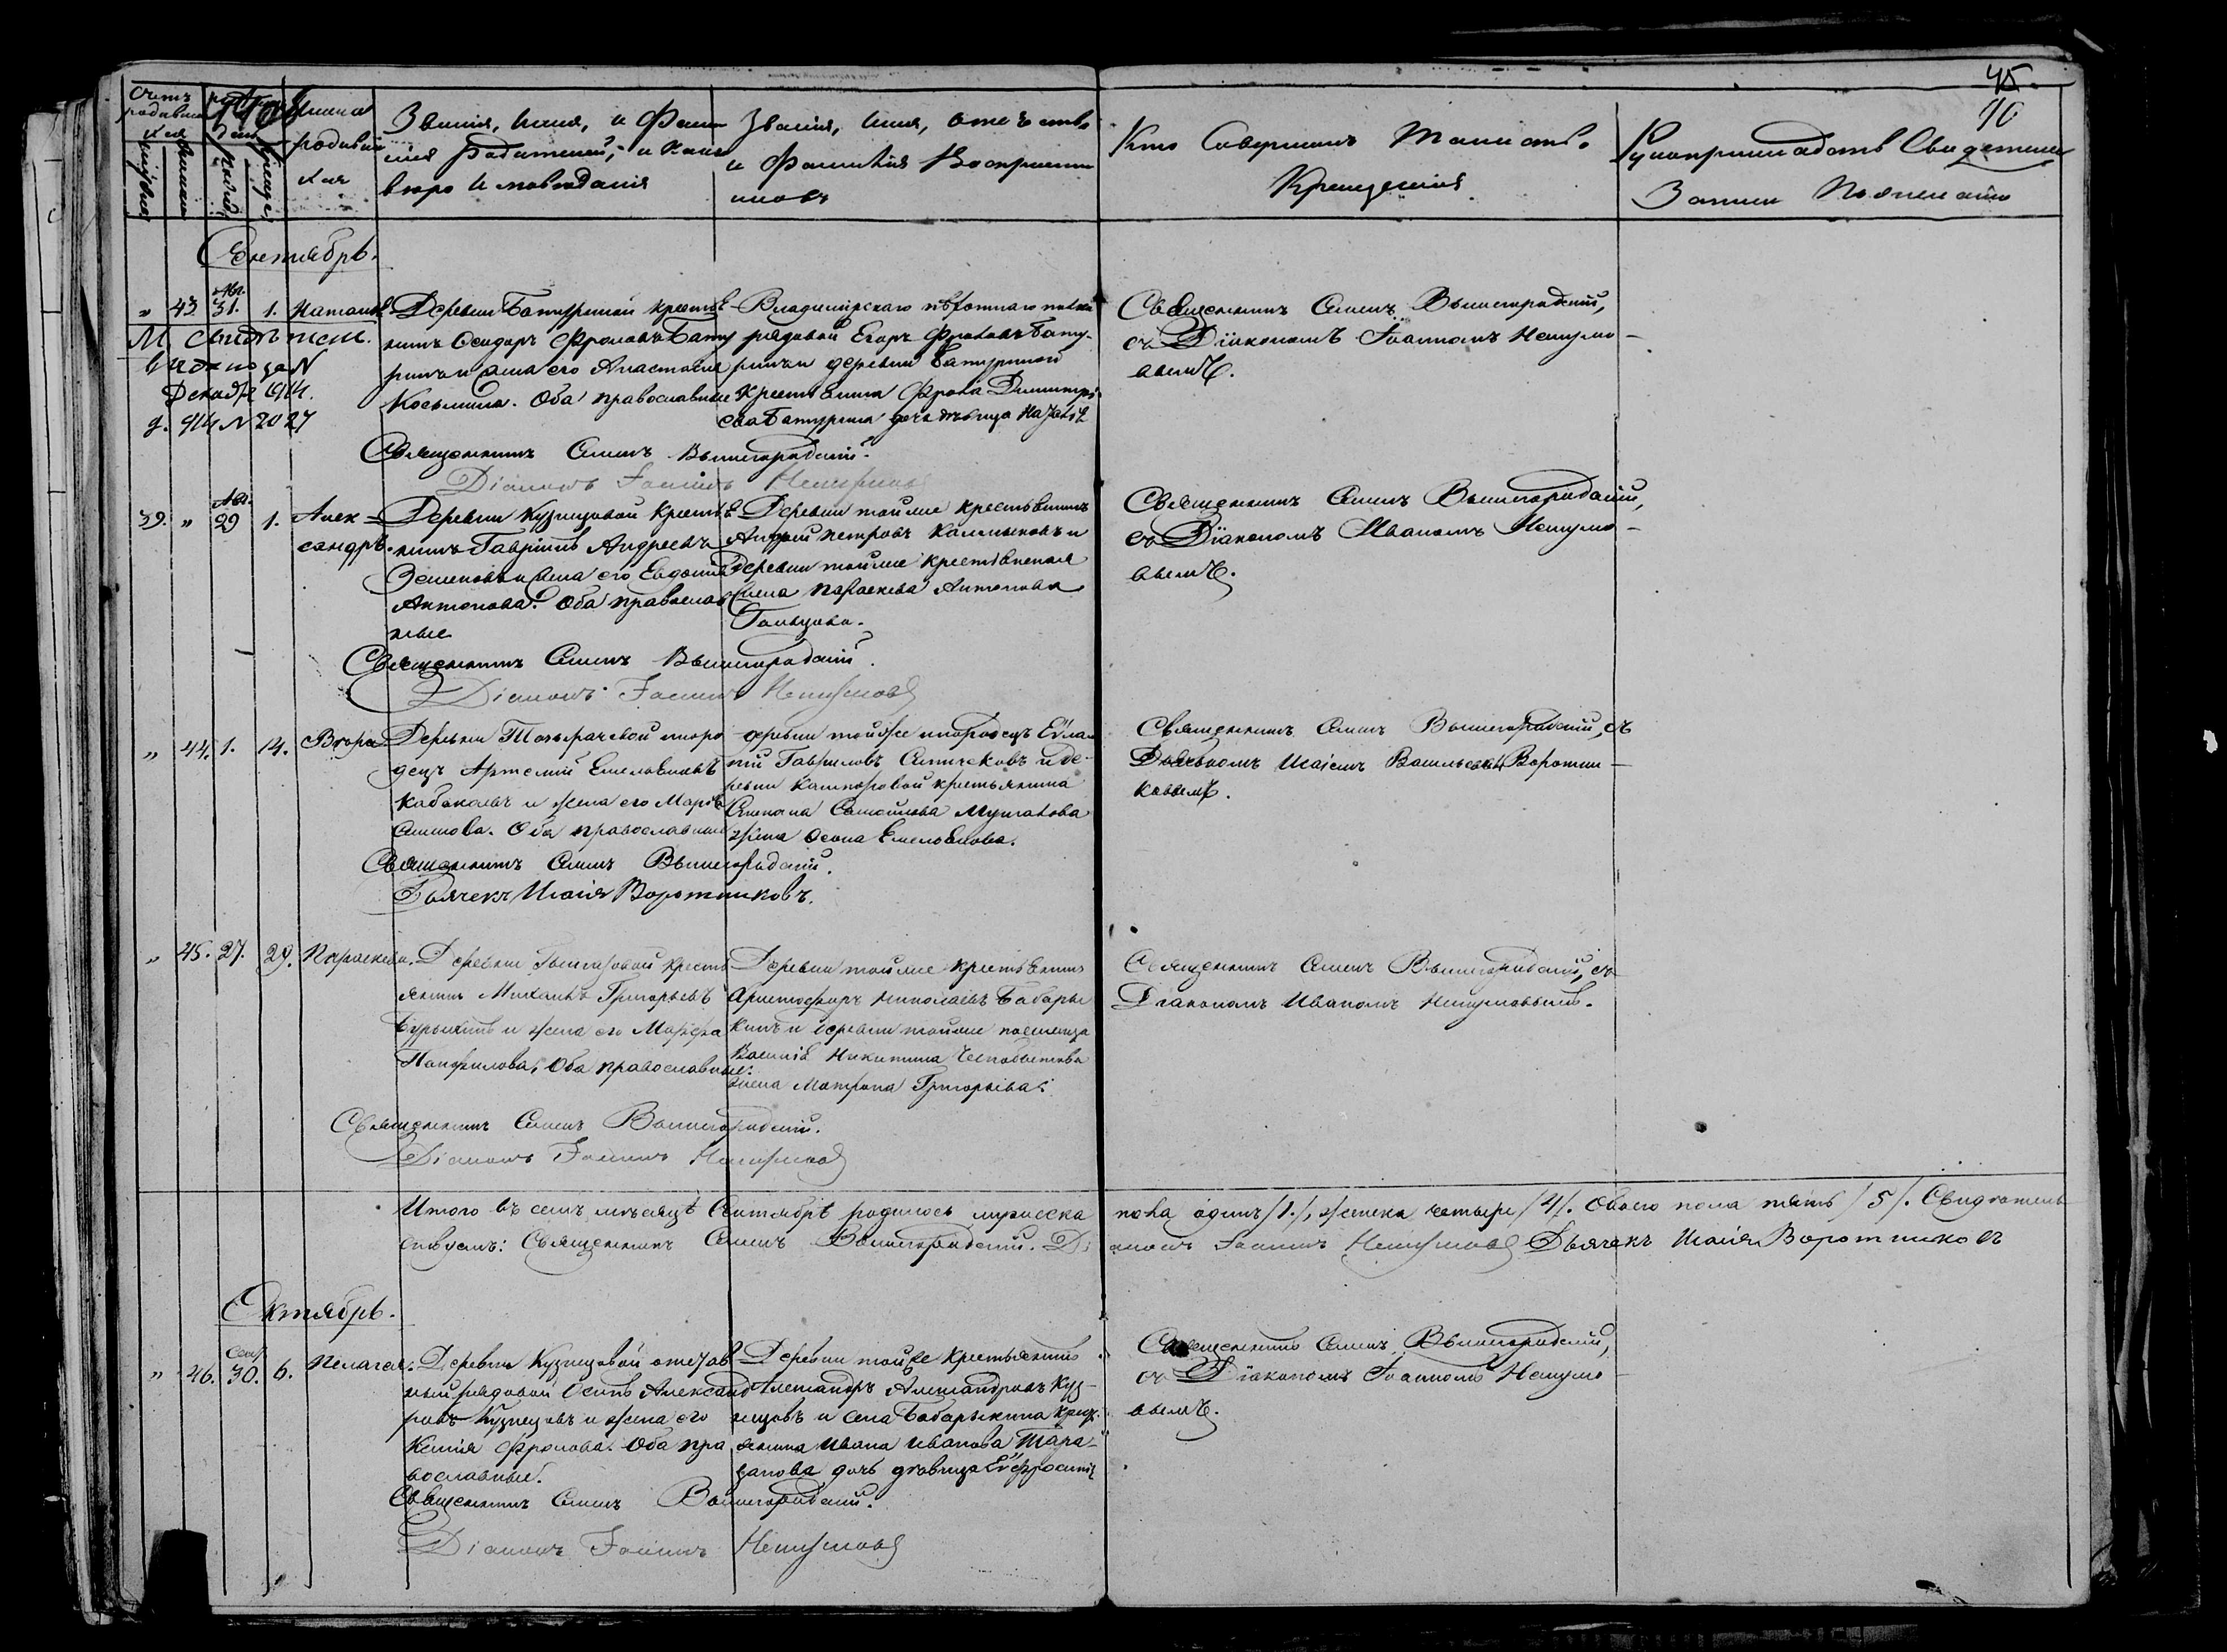 45.
46
Счетъ родившихся
мужеска
женска
день
рожд.
креще.
Имена родившихся
Званія, имя, и фамилія родителей, и какого вѣроисповѣданія
Званія, имя, отечество и фамилія воспріемниковъ
Кто совершалъ таинство крещенія
Рукоприкладство свидетелей записи по желанію
Сентябрь.
„ 43. Авг. 31. 1. Наталія
М. свидѣтел.
выдано за №
Декабр. 1914.
Деревни Батуриной крестья-
нинъ Феодоръ Фроловъ Бату
ринъ и жена его Анастасія
Косьмина. Оба православные
Владимірскаго пѣхотнаго полка
рядовой Егоръ Фроловъ Бату-
ринъ и деревни Батуриной
крестьянина Фрола Димитрі-
ева Батурина дочь дѣвица
Священникъ Симеонъ Вышегородскій,
съ Діакономъ Іоанномъ Нешумо-
вымъ.
Священникъ Симеонъ Вышегородскій.
Діаконъ Іоаннъ Нешумовъ
39. „ Авг. 29 1. Алек-
сандръ.
Деревни Кузнецовой крестья
нинъ Гавріилъ Андреевъ
и жена его Евдокія
Антонова. Оба православ
ные
Деревни тойже крестьянинъ
Андрей Петровъ Калмыковъ и
деревни тойже крестьянская
жена Параскева Антонова
Священникъ Симеонъ Вышегородскій,
съ Діакономъ Иваномъ Нешумо-
вымъ.
Священникъ Симеонъ Вышегородскій.
Діаконъ Іоаннъ Нешумовъ
„ 44. 1. 14. Вѣра
иноро
децъ Артемій Емельяновъ
и жена его Марія
Оба православные
деревни тойже инородецъ
Гавриловъ и де-
ревни крестьянина
Степана Самойлова
жена Осипа Емельянова.
Священникъ Симеонъ Вышегородскій, съ
Дьячкомъ Исаіемъ Васильевымъ Воротни-
ковымъ.
Священникъ Симеонъ Вышегородскій.
Дьячекъ Исаія Воротниковъ.
„ 45. 27. 29. Параскева.
Деревни крестья
янинъ Михаилъ Григорьевъ
и жена его Марфа
Панфилова, Оба православные.
Деревни тойже крестьянинъ
Христофоръ Николаевъ Бабары
кинъ и деревни тойже поселенца
Василія Никитина
жена Матрона Григорьева.
Священникъ Симеонъ Вышегородскій, съ
Діакономъ Иваномъ Нешумовымъ.
Священникъ Симеонъ Вышегородскій.
Діаконъ Іоаннъ Нешумовъ
Итого въ семъ мѣсяцѣ Сентябрѣ родилось мужеска пола одинъ /1./, женска четыре /4/. Обоего пола пять /5/. Свидѣтель
ствуемъ: Священникъ Симеонъ Вышегородскій. Діаконъ Іоаннъ Нешумовъ Дьячекъ Исаія Воротниковъ
Октябрь.
„ 46. Сент. 30. 6. Пелагея.
Деревни Кузнецовой отстав
ный рядовой Осипъ Александ
ровъ Кузнецовъ и жена его
Ксенія Фролова. Оба пра
вославные.
Деревни тойже крестьянинъ
Александръ Александровъ Куз-
нецовъ и села Бабарыкина крест.
янина Ивана Иванова Тара-
занова дочь дѣвица Евфросинія
Священникъ Симеонъ Вышегородскій,
съ Діакономъ Іоанномъ Нешумо-
вымъ.
Священникъ Симеонъ Вышегородскій.
Діаконъ Іоаннъ Нешумовъ